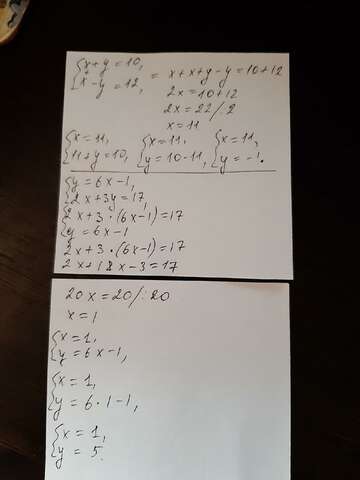 {x+y=10, = x+x+y-y=10+12
{x-y=12,
2x=10+12
2x=22/:2
x=11
{x=11, {x=11, {x=11,
{11+y=10, {y=10-11, {y=-1.
{y=6x-1,
{2x+3y=17,
{2x+3·(6x-1)=17
{y=6x-1
2x+3·(6x-1)=17
2x+18x-3=17
20x=20/:20
x=1
{x=1,
{y=6x-1,
{x=1,
{y=6·1-1,
{x=1,
{y=5.